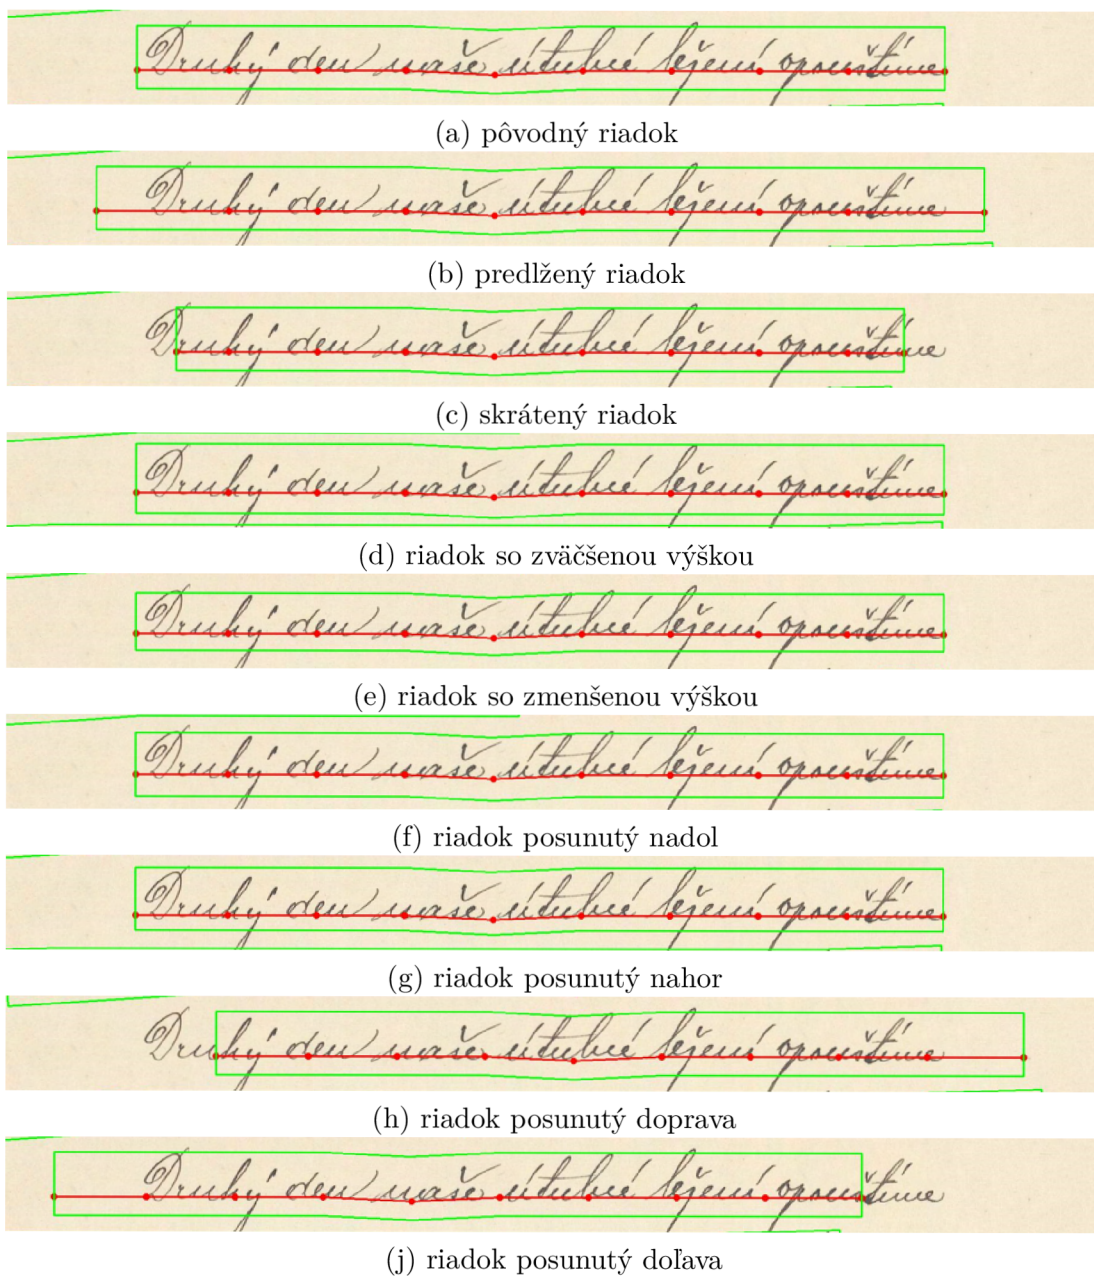 Druhý den naše útulné ležení opouštíme
(a) pôvodný riadok
Druhý den naše útulné ležení opouštíme
(b) predlžený riadok
Druhý den naše útulné ležení opouštíme
(c) skrátený riadok
Druhý den naše útulné ležení opouštíme
(d) riadok so zväčšenou výškou
Druhý den naše útulné ležení opouštíme
(e) riadok so zmenšenou výškou
Druhý den naše útulné ležení opouštíme
(f) riadok posunutý nadol
Druhý den naše útulné ležení opouštíme
(g) riadok posunutý nahor
Druhý den naše útulné ležení opouštíme
(h) riadok posunutý doprava
Druhý den naše útulné ležení opouštíme
(j) riadok posunutý doľava